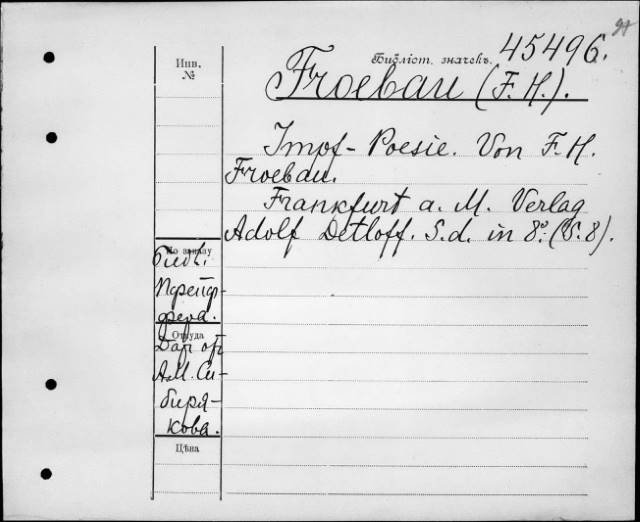 Инв.
№
Библіот. значекъ.
45496.
Froebau (F. H.).
Impf-Poesie. Von F. H.
Froebau.
Frankfurt a. M. Verlag
Adolf Detloff. S.d. in 8º. (S. 8).
По заказу
Библ.
Пфейф-
фера.
Откуда
Дар от
А.М. Си-
биря-
кова.
Цѣна